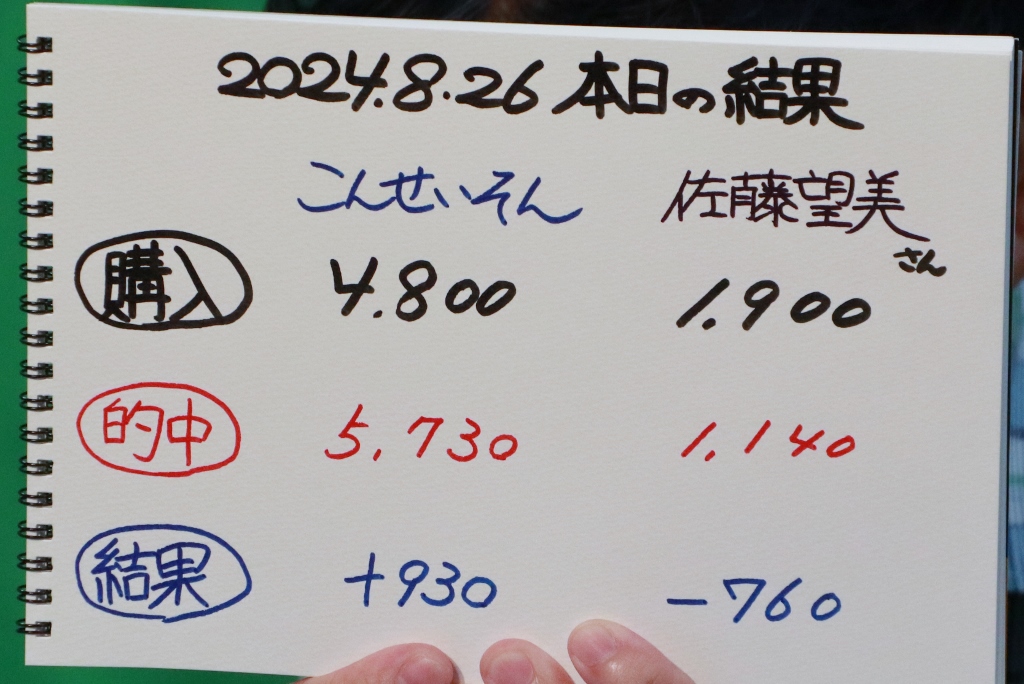 2024.8.26 本日の結果
こんせいそん 佐藤望美さん
購入 4.800 1.900
的中 5.730 1.140
結果 +930 -760